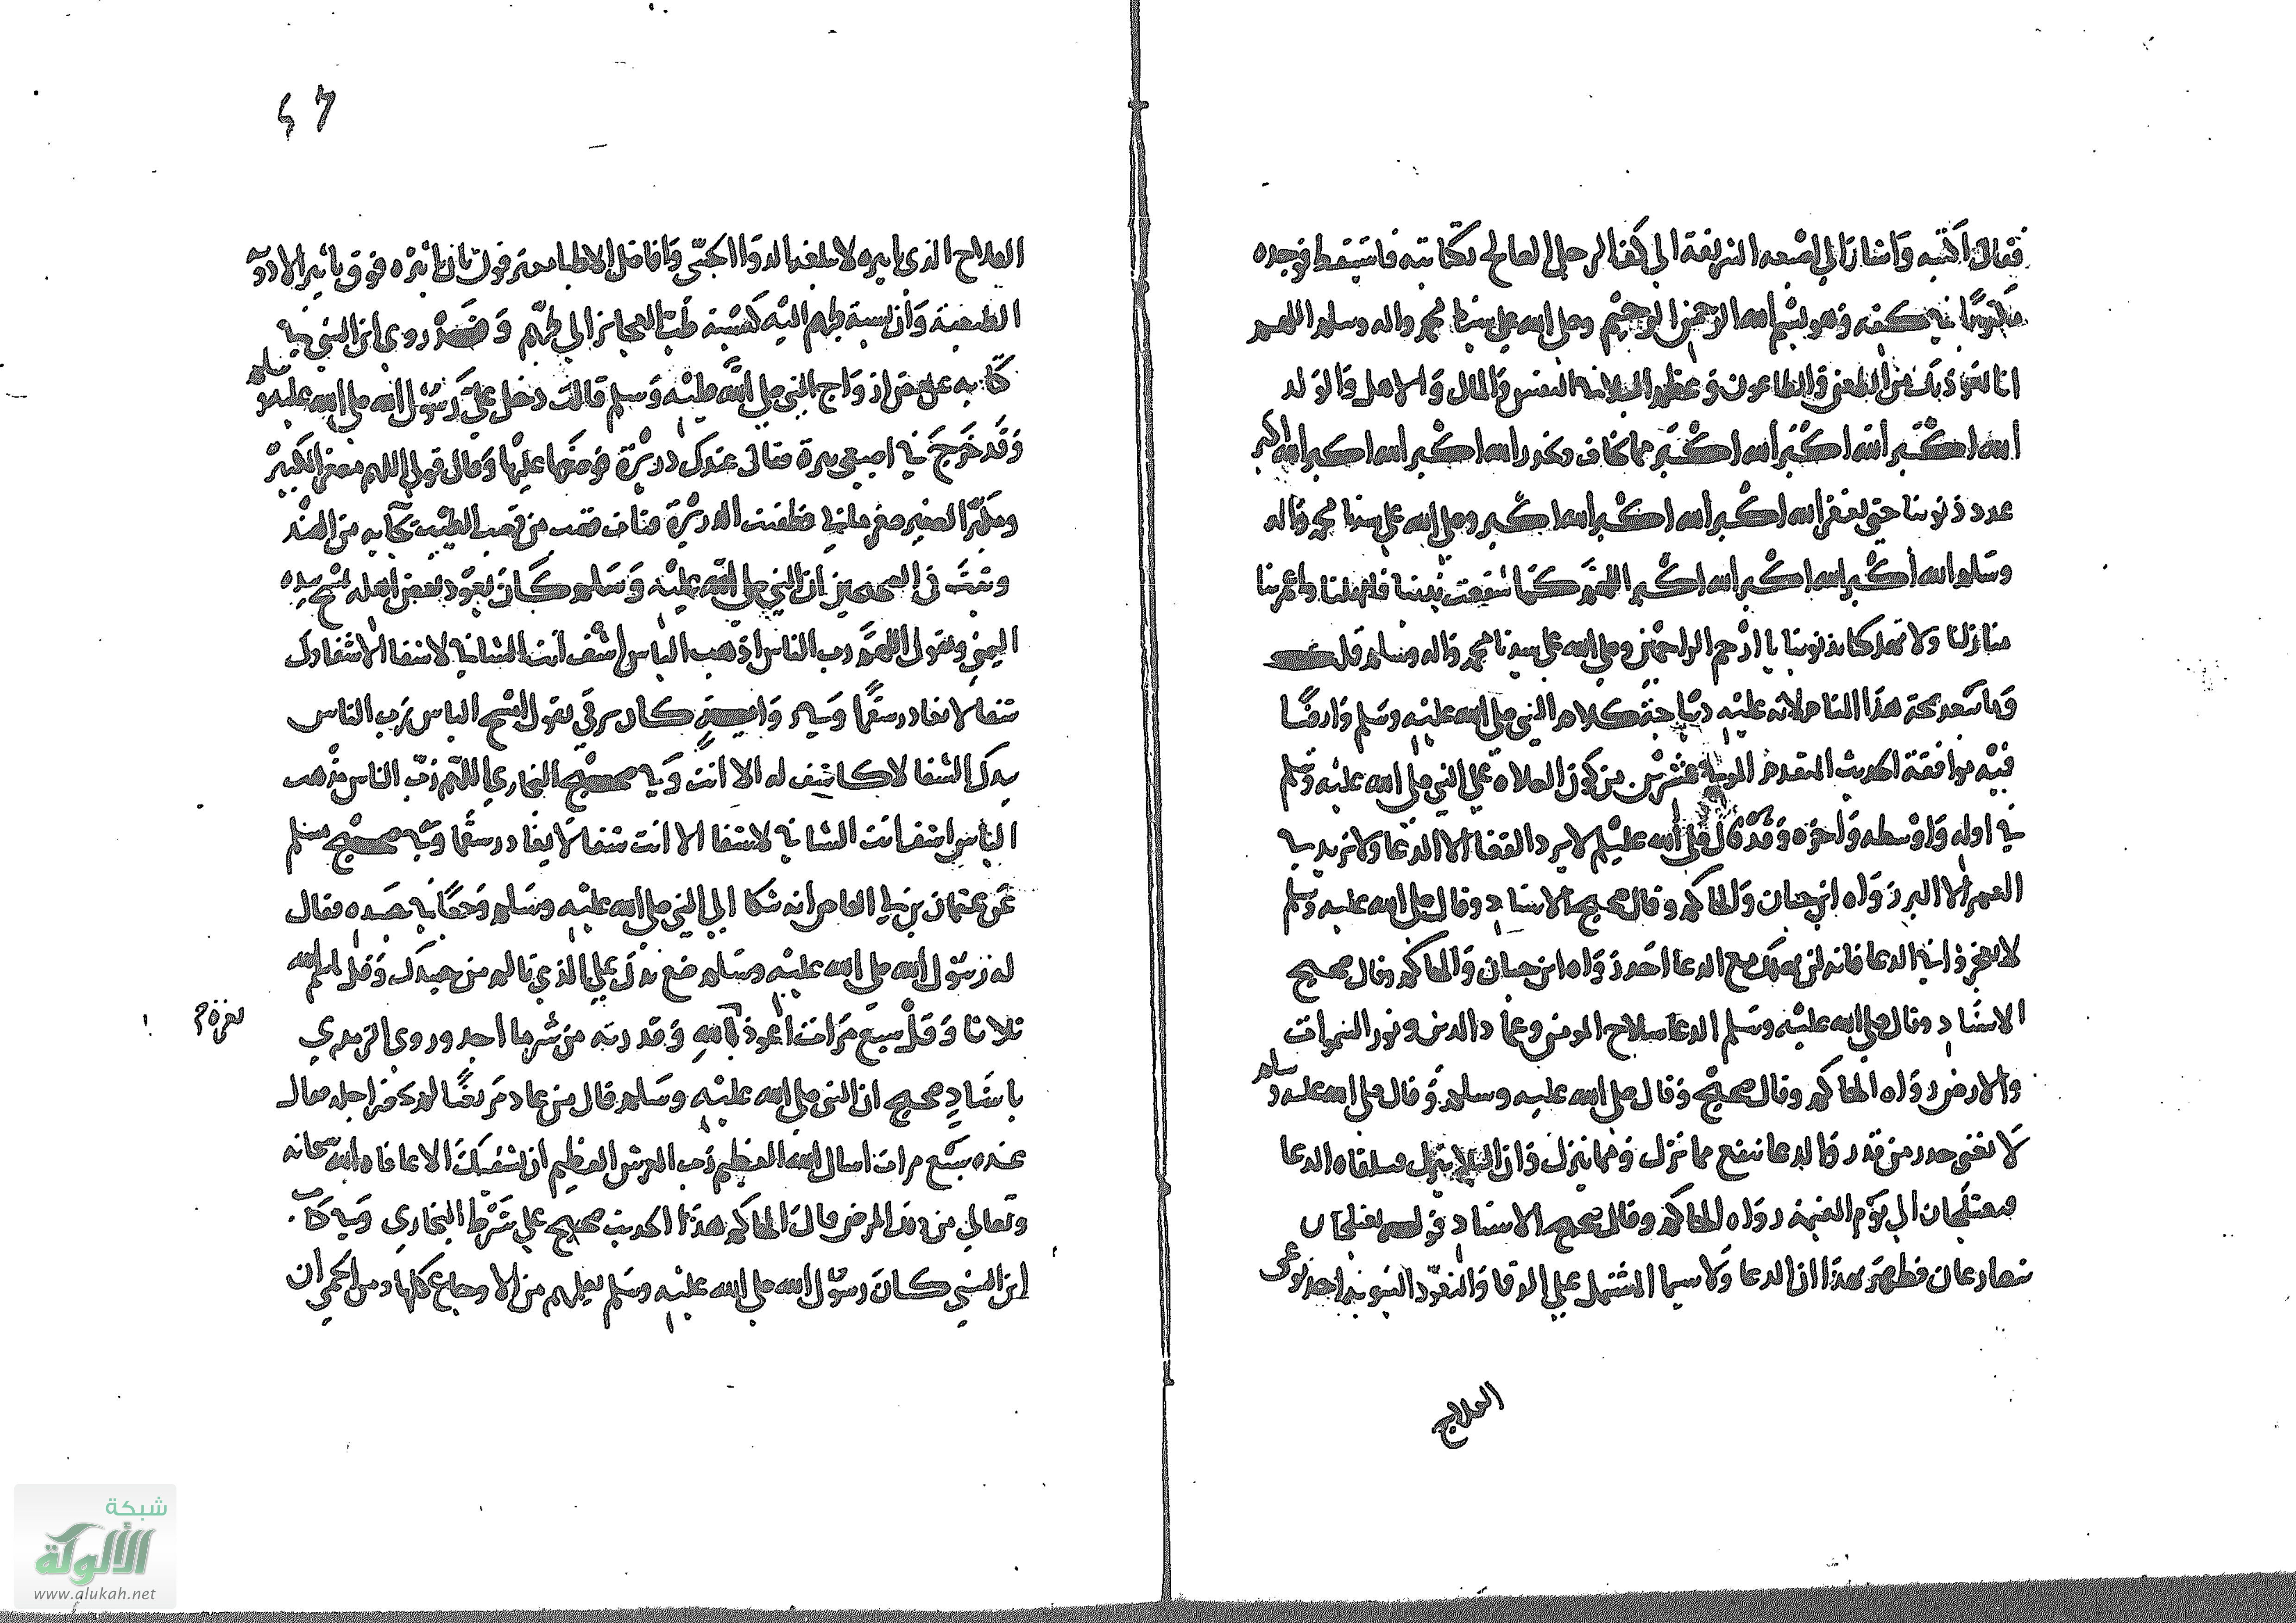 فقال اكتبه واشار الي اصبعه الشريفة الي كف الرجل الصالح بكتابته فاستيقظ فوجده
مكتوبا في كفه وهو بسم الله الرحمن الرحيم وصلي الله علي سيدنا محمد واله وسلم اللهم
انا نعوذ بك من الطعن والطاعون وعظيم البلا في النفس والمال والاهل والولد
الله اكبر الله اكبر الله اكبر مما نخاف ونحذر الله اكبر الله اكبر الله اكبر
عدد ذنوبنا حتي تغفر الله اكبر الله اكبر الله اكبر وصلي الله علي سيدنا محمد واله
وسلم الله اكبر الله اكبر الله اكبر اللهم كما شفعت نبينا فامهلنا واعمر بنا
منازلنا ولا تهلكنا بذنوبنا يا ارحم الراحمين وصلي الله علي سيدنا محمد واله وسلم قلت
وما تبعد صحة هذا المنام لانه عليه ديباجة كلام النبي صلي الله عليه وسلم وايضا
فيه موافقة الحديث المتقدم من كون الصلاة علي النبي صلي الله عليه وسلم
في اوله واوسطه واخره وقد قال صلي الله عليه وسلم لا يرد القضا الا الدعا ولا يزيد في
العمر الا البر رواه ابن حبان والحاكم وقال صحيح الاسناد وقال صلي الله عليه وسلم
لا تعجزوا في الدعا فانه لن يهلك مع الدعا احد رواه ابن حبان والحاكم وقال صحيح
الاسناد وقال صلي الله عليه وسلم الدعا سلاح المومن وعماد الدين ونور السموات
والارض رواه الحاكم وقال صحيح وقال صلي الله عليه وسلم وقال صلي الله عليه وسلم
لا يغني حذر من قدر والدعا ينفع مما نزل ومما ينزل وان البلا ينزل فيلقاه الدعا
فيعتلجان الي يوم القيمة رواه الحاكم وقال صحيح الاسناد قوله يعتلجان
يتصارعان فظهر بهذا ان الدعا ولا سيما المشتمل علي الرقا والتعوذ النبوية احد نوعي
العلاج
٤٦
العلاج الذي تاثيره لا يبلغه الدوا الحسي وافاضل الاطبا معترفون بان تاثيره فوق تاثير الادوية
الطبيعية وان نسبة طبهم اليه كنسبة طب العجائز الي طبهم وقد روي ابن السني في
كتابه عن بعض ازواج النبي صلي الله عليه وسلم قالت دخل علي رسول الله صلي الله عليه وسلم
وقد خرج في اصبعي بثرة فقال عندك ذريرة فوضعها عليها وقال قولي اللهم مصغر الكبير
ومكبر الصغير صغر ما بي فطفيت الذريرة فتات قصب من قصب الطيب يجا به من الهند
وثبت في الصحيحين ان النبي صلي الله عليه وسلم كان يعوذ بعض اهله يمسح بيده
اليمني ويقول اللهم رب الناس اذهب الباس اشف انت الشافي لا شفا الا شفاوك
شفا لا يغادر سقما وفي رواية كان يرقي يقول امسح الباس رب الناس
بيدك الشفا لا كاشف له الا انت وفي صحيح البخاري اللهم رب الناس مذهب
الباس اشف انت الشافي لا شفا الا انت شفا لا يغادر سقما وفي صحيح مسلم
عن عثمان بن ابي العاص انه شكا الي النبي صلي الله عليه وسلم وجعا في جسده فقال
له رسول الله صلي الله عليه وسلم ضع يدك علي الذي تالم من جسدك وقل بسم الله
ثلاثا وقل سبع مرات اعوذ بالله وقدرته من شر ما اجد وروي الترمذي
بعزة
باسناد صحيح ان النبي صلي الله عليه وسلم قال من عاد مريضا لم يحضر اجله فقال
عنده سبع مرات اسال الله العظيم رب العرش العظيم ان يشفيك الا عافاه الله سبحانه
وتعالي من ذلك المرض قال الحاكم هذا الحديث صحيح علي شرط البخاري وفي كتاب
ابن السني كان رسول الله صلي الله عليه وسلم يعلمهم من الاوجاع كلها ومن الحمي ان
شبكة
الألوكة
www.alukah.net